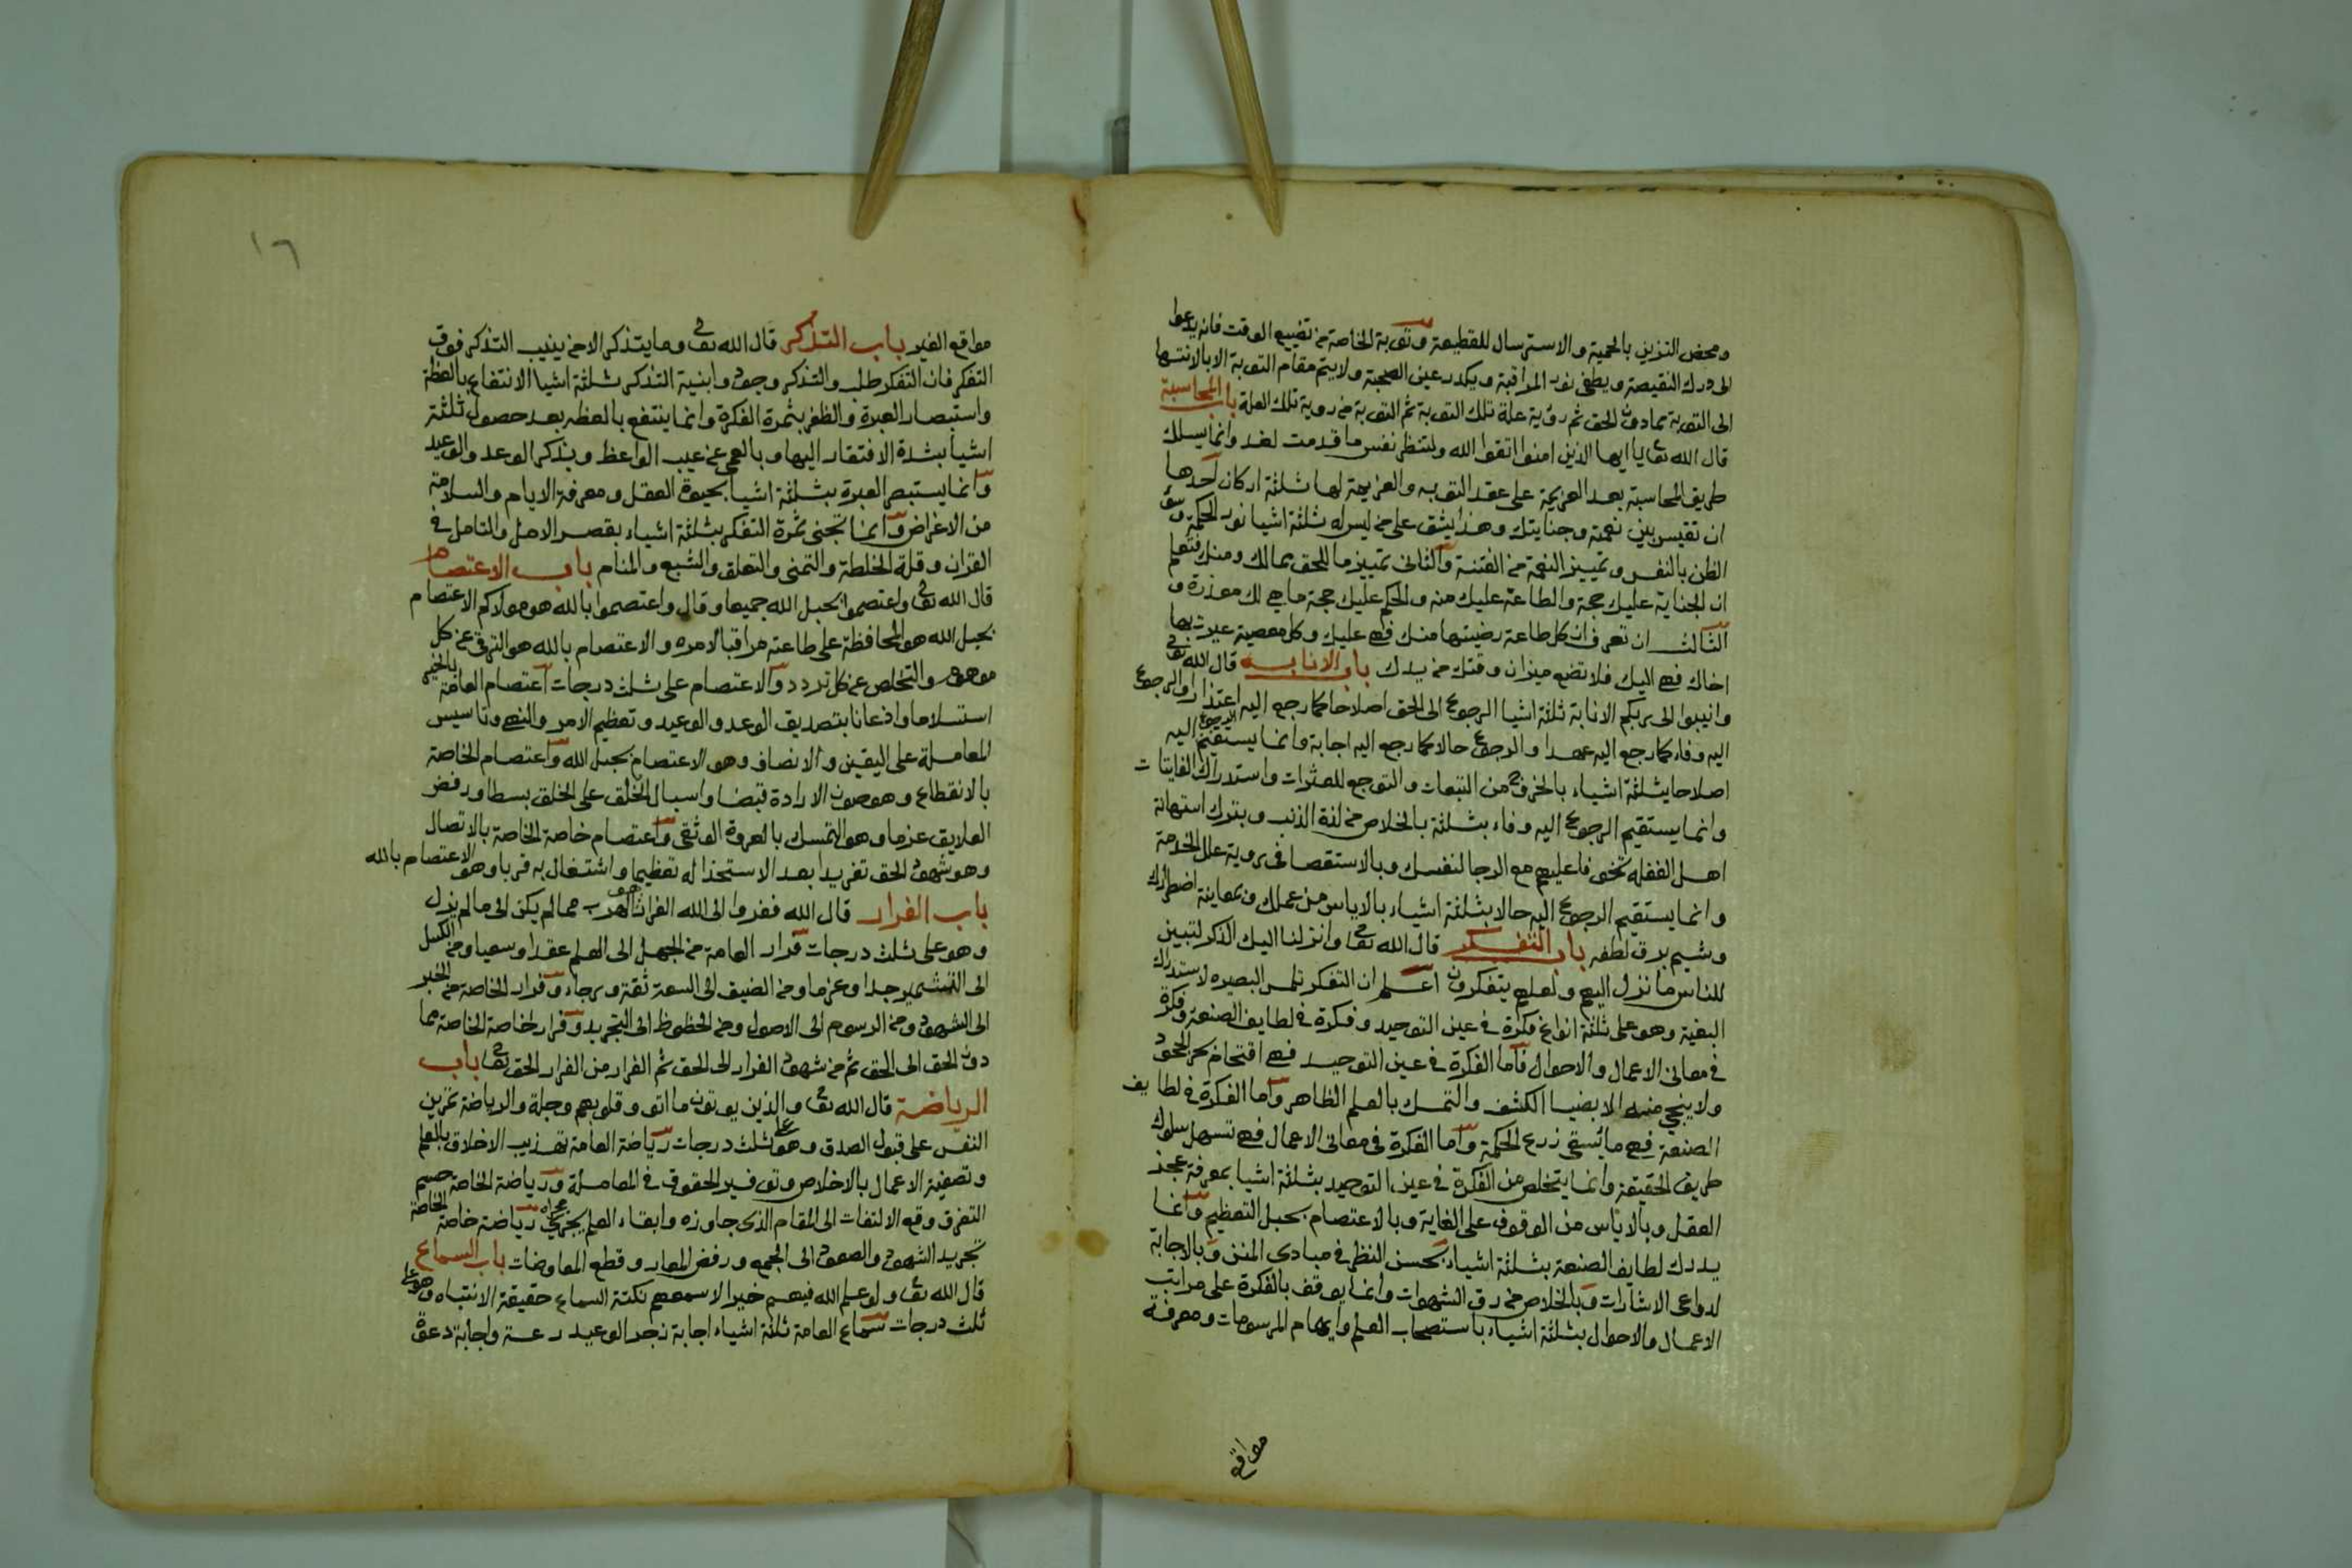 ومحض التزين بالحمية والاسترسال للقطيعة وتوبة الخاصة من تضييع الوقت فانه يدعوا
الى درك النقيصة ويطفى نور المراقبة ويكدر عين الصحبة ولا يتم مقام التوبة الا بالانتها
الى التوبة مما دون الحق ثم رؤية علة تلك التوبة ثم التوبة من روية تلك العلة باب المحاسبة
قال الله تعا يا ايها الذين امنوا اتقوا الله ولتنظر نفس ما قدمت لغد وانما يسلك
طريق المحاسبة بعد العزيمة على عقد التوبه والعزيمة لها ثلثة اركان احدها
ان تقيس بين نعمته وجنايتك وهذا يشق على من ليس له ثلثة اشيا نور الحكمة وسؤ
الظن بالنفس وتمييز النعمة من الفتنة والثانى تمييز ما للحق مما لك ومنك فتعلم
ان الجناية عليك حجة والطاعة عليك منه والحكم عليك حجة ما هي لك معذرة و
الثالث ان تعرف ان كل طاعة رضيتها منك فهى عليك وكل معصية عيرت بها
اخاك فهى اليك فلا تضع ميزان وقتك من يدك باب الانابه قال الله تعا
وانيبوا الى ربكم الانابة ثلثة اشيا الرجوع الى الحق اصلاحا كما رجع اليه اعتذارا والرجوع
اليه وفاء كما رجع اليه عهدا والرجوع حالا كما رجع اليه اجابة وانما يستقيم الرجوع اليه
اصلاحا بثلثة اشياء بالخروج من التبعات والتوجع للعثرات واستدراك الفايتات
وانما يستقيم الرجوع اليه وفاء بثلثة بالخلاص من لذة الذنب وبترك استهانة
اهل الغفله تخوفا عليهم مع الرجا لنفسك وبالاستقصا فى روية علل الخدمة
وانما يستقيم الرجوع اليه حالا بثلثة اشياء بالاياس من عملك وبمعاينة اضطرارك
وشيم برق لطفه باب التفكر قال الله تعا وانزلنا اليك الذكر لتبين
للناس ما نزل اليهم ولعلهم يتفكرون اعلم ان التفكر تلمس البصيره لاستدراك
البغية وهو على ثلثة انواع فكرة فى عين التوحيد وفكرة فى لطايف الصنعة وفكرة
فى معانى الاعمال والاحوال فاما الفكرة فى عين التوحيد فهى اقتحام بحر الجحود
ولا ينجى منه الا بضيا الكشف والتمسك بالعلم الظاهر واما الفكرة فى لطايف
الصنعة فهى ما يسقى زرع الحكمة واما الفكرة فى معانى الاعمال فهى تسهل سلوك
طريق الحقيقة وانما يتخلص من الفكرة فى عين التوحيد بثلثة اشيا بمعرفة عجز
العقل وبالاياس من الوقوف على الغاية وبالاعتصام بحبل التعظيم وانما
يدرك لطايف الصنعة بثلثة اشياء بحسن النظر فى مبادى المنن وبالاجابة
لدواعى الاشارات وبالخلاص من رق الشهوات وانما يوقف بالفكرة على مراتب
الاعمال والاحوال بثلثة اشياء باستصحاب العلم وايهام المرسومات ومعرفة
مواقع
١٦
مواقع الغير باب التذكر قال الله تعا وما يتذكر الا من ينيب التذكر فوق
التفكر فان التفكر طلب والتذكر وجود وابنية التذكر ثلثة اشيا الانتفاع بالعظة
واستبصار العبرة والظفر بثمرة الفكرة وانما ينتفع بالعظه بعد حصول ثلثة
اشيا بشدة الافتقار اليها وبالعمى عن عيب الواعظ وبذكر الوعد والوعيد
وانما يستبصر العبرة بثلثة اشيا بحيوة العقل ومعرفة الايام والسلامة
من الاغراض وانما تجنى ثمرة التفكر بثلثة اشياء بقصر الامل والتامل فى
القران وقلة الخلطة والتمنى والتعلق والشبع والمنام باب الاعتصام
قال الله تعا واعتصموا بحبل الله جميعا وقال واعتصموا بالله هو مولاكم الاعتصام
بحبل الله هو المحافظة على طاعته مراقبا لامره والاعتصام بالله هو الترقى عن كل
موهوم والتخلص عن كل تردد والاعتصام على ثلث درجات اعتصام العامة بالخبر
استسلاما واذعانا بتصديق الوعد والوعيد وتعظيم الامر والنهى وتاسيس
المعاملة على اليقين والانصاف وهو الاعتصام بحبل الله واعتصام الخاصة
بالانقطاع وهو صون الارادة قبضا واسبال الخلق على الخلق بسطا ورفض
العلايق عزما وهو التمسك بالعروة الوثقى واعتصام خاصة الخاصة بالاتصال
وهو شهود الحق تفريدا بعد الاستخذا له تعظيما واشتغال به قربا وهو الاعتصام بالله
باب الفرار قال الله ففروا الى الله الفرار هو الهرب مما لم يكن الى ما لم يزل
وهو على ثلث درجات فرار العامة من الجهل الى العلم عقدا وسعيا ومن الكسل
الى التشمير جدا وعزما ومن الضيق الى السعة ثقة ورجاء وفرار الخاصة من الخبر
الى الشهود ومن الرسوم الى الاصول ومن الحظوظ الى التجريد وفرار خاصة الخاصة مما
دون الحق الى الحق ثم من شهود الفرار الى الحق ثم الفرار من الفرار الحق تعا باب
الرياضة قال الله تعا والذين يوتون ما اتوا وقلوبهم وجلة والرياضة تمرين
النفس على قبول الصدق وهو على ثلث درجات رياضة العامة تهذيب الاخلاق بالعلم
وتصفية الاعمال بالاخلاص وتوفير الحقوق فى المعاملة ورياضة الخاصة حسم
التفرق وقطع الالتفات الى المقام الذى جاوزه وابقاء العلم يجرى مجراه رياضة خاصة الخاصة
تجريد الشهود والصعود الى الجمع ورفض المعارضات وقطع المعاوضات باب السماع
قال الله تعا ولو علم الله فيهم خيرا لاسمعهم نكتة السماع حقيقة الانتباه وهو على
ثلث درجات سماع العامة ثلثة اشياء اجابة زجر الوعيد رعة واجابة دعوة